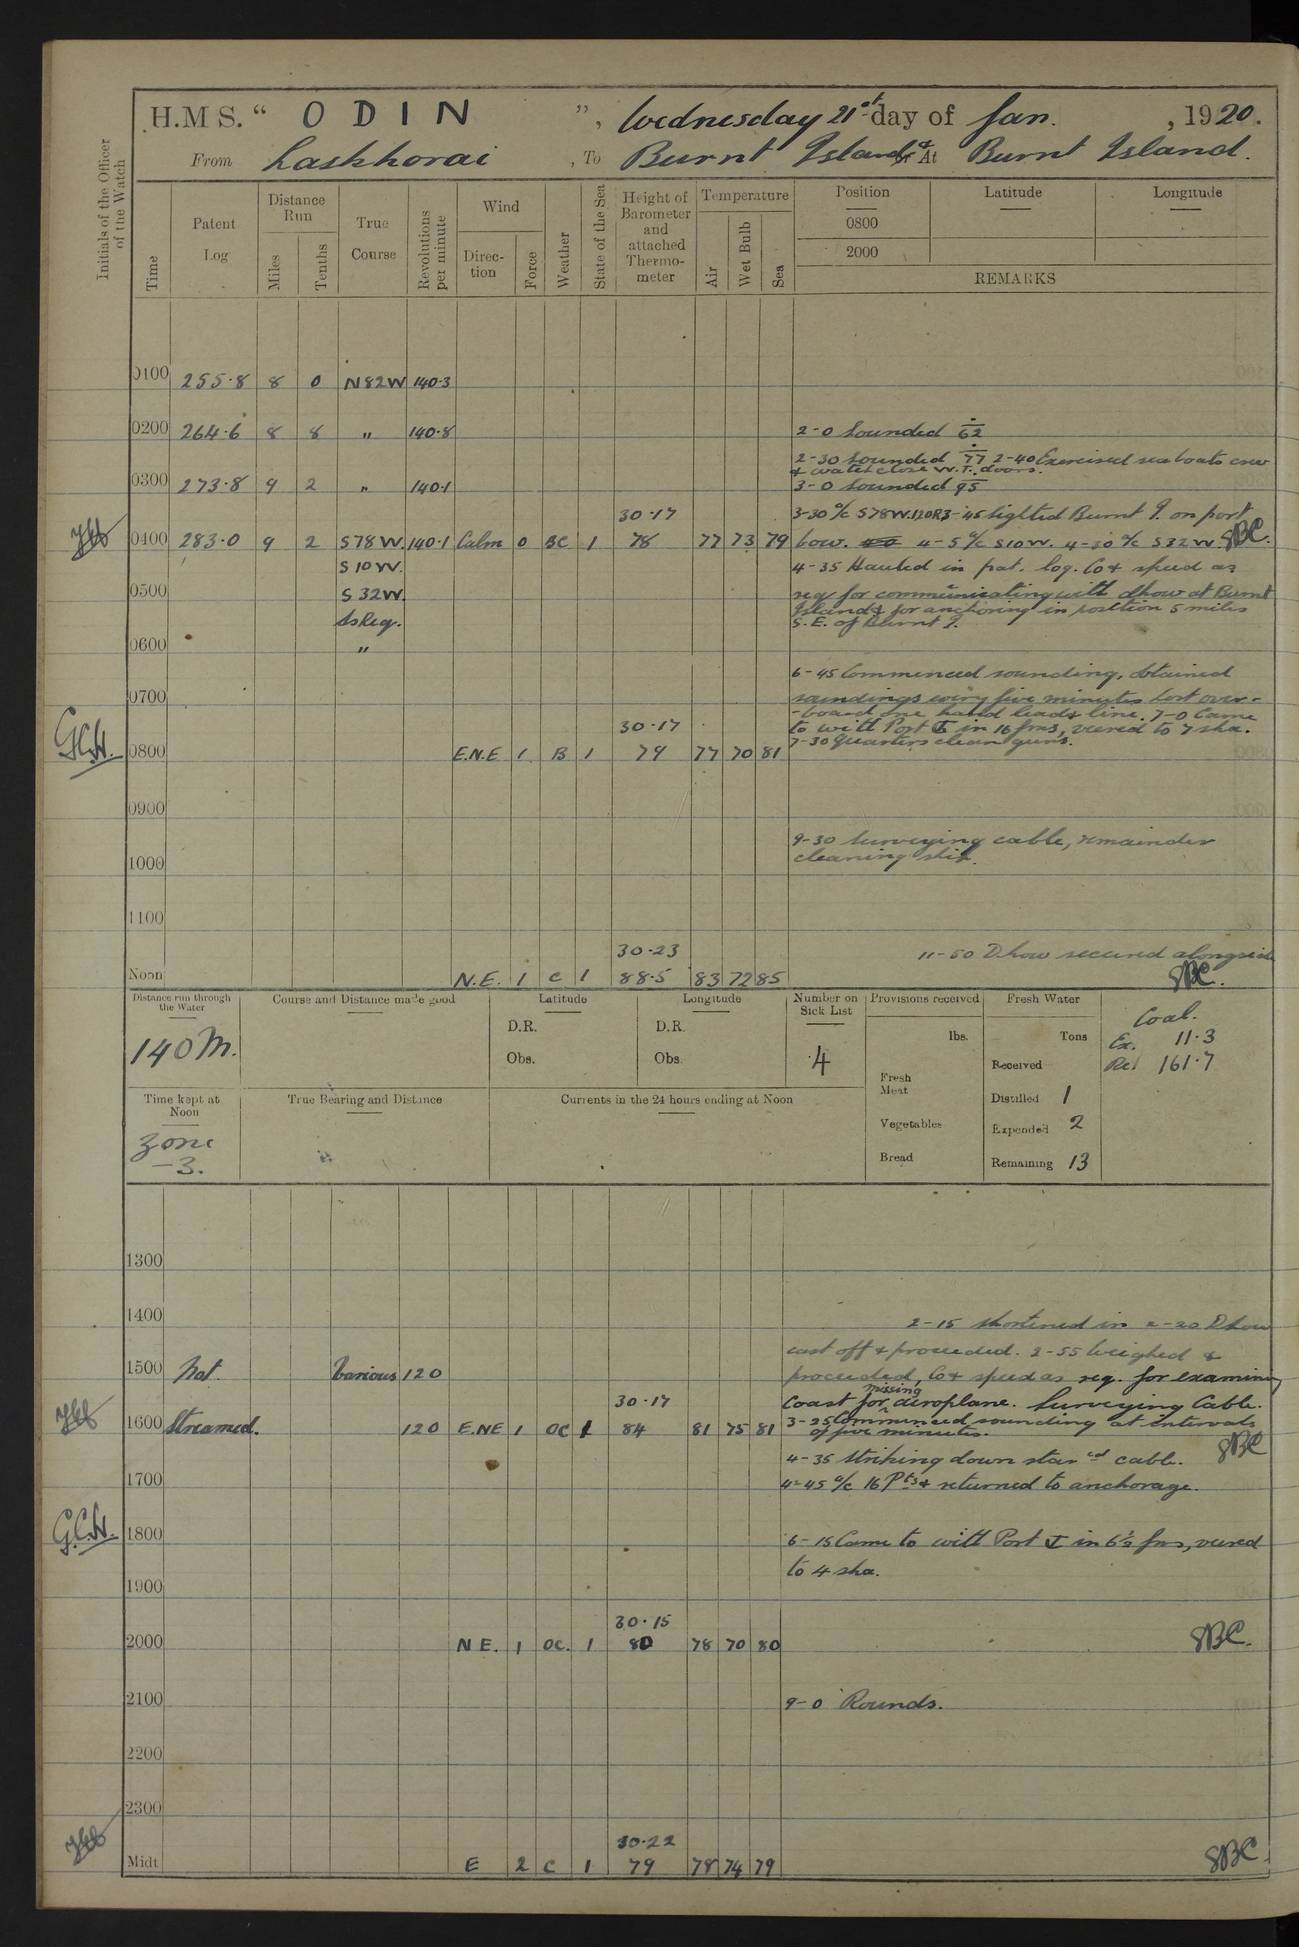 H.M S. “ ODIN ”, Wednesday 21st day of Jan. , 1920.
From Laskhorai , To Burnt Island & or At Burnt Island.
Initials of the Officer of the Watch
Time
Patent Log
Distance Run
Miles
Tenths
True Course
Revolutions per minute
Wind
Direction
Force
Weather
State of the Sea
Height of Barometer and attached Thermometer
Temperature
Air
Wet Bulb
Sea
Position
Latitude
Longitude
0800
2000
REMARKS
0100 255·8 8 0 N82W 140·3
0200 264·6 8 8 " 140·8 2-0 Sounded 62
2-30 Sounded 77 2-40 Exercised sea boats crew
& watch close W.T. doors.
0300 273·8 9 2 " 140·1 3-0 Sounded 95
30·17 3-30 a/c S78W.120R 3-45 Sighted Burnt I. on port
0400 283·0 9 2 S78W. 140·1 Calm 0 BC 1 78 77 73 79 bow. 4-5 a/c S10W. 4-30 a/c S32W. SBC.
S10W. 4-35 Hauled in pat. log. Co & speed as
0500 S32W. req for communicating with dhow at Burnt
Island & for anchoring in position 5 miles
As Req. S.E. of Burnt I.
0600 "
6-45 Commenced sounding, obtained
0700 soundings every five minutes lost over-
-board one hand lead & line. 7-0 Came
30·17 to with Port ⚓ in 16 fms, veered to 7 sha.
G.C.H. 7-30 Quarters clean guns.
0800 E.N.E 1 B 1 79 77 70 81
0900
9-30 Surveying cable, remainder
1000 cleaning ship.
1100
30·23 11-50 Dhow secured alongside
Noon N.E. 1 C 1 88·5 83 72 85 SBC.
Distance run through the Water
140 M.
Course and Distance made good
Latitude
D.R.
Obs.
Longitude
D.R.
Obs.
Number on Sick List
4
Provisions received
lbs.
Fresh Meat
Vegetables
Bread
Fresh Water
Tons
Received
Distilled 1
Expended 2
Remaining 13
Coal.
Ex. 11·3
Re. 161·7
Time kept at Noon
Zone
-3.
True Bearing and Distance
Currents in the 24 hours ending at Noon
1300
1400 2-15 Shortened in 2-20 Dhow
cast off & proceeded. 2-55 Weighed &
1500 Not Various 120 proceeded, Co & speed as req. for examining
30·17 coast for missing aeroplane. Surveying Cable.
1600 Streamed. 120 E.NE 1 OC 1 84 81 75 81 3-25 Commenced sounding at intervals
of five minutes. SBC
4-35 Striking down starcd cable.
1700 4-45 a/c 16 Pts & returned to anchorage.
G.C.H.
1800 6-15 Came to with Port ⚓ in 6½ fms, veered
to 4 sha.
1900
30·15
2000 NE. 1 OC. 1 80 78 70 80 SBC.
2100 9-0 Rounds.
2200
2300
30·22
Midt E 2 C 1 79 78 74 79 SBC.